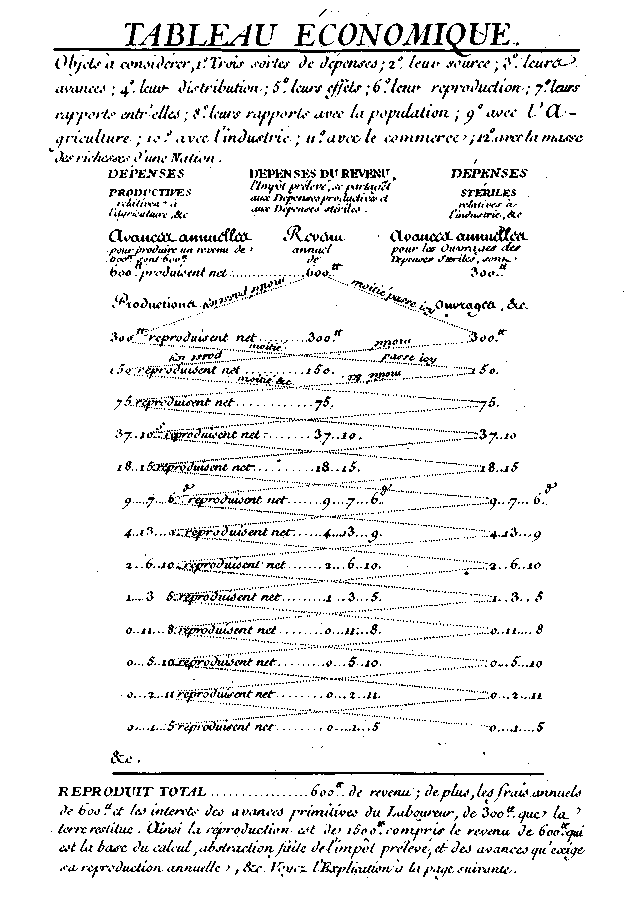 TABLEAU ÉCONOMIQUE.
Objets à considérer, 1º. Trois sortes de dépenses; 2º. leur source; 3º. leurs
avances; 4º. leur distribution; 5º. leurs effets; 6º. leur reproduction; 7º. leurs
rapports entr'elles; 8º. leurs rapports avec la population; 9º. avec l'A-
griculture; 10º. avec l'industrie; 11º. avec le commerce; 12º. avec la masse
des richesses d'une Nation.
DÉPENSES DEPENSES DU REVENU, DÉPENSES
PRODUCTIVES l'Impôt prélevé, se partagent STÉRILES
relatives à aux Dépenses productives et relatives à
l'agriculture, &c aux Dépenses stériles. l'industrie, &c
Avances annuelles Revenu Avances annuelles
pour produire un revenu de annuel pour les Ouvrages des
600.tt sont 600.tt de Dépenses Stériles, sont
600.tt produisent net............600.tt 300.tt
Productions moitié passe icy Ouvrages, &c.
300.tt reproduisent net........300.tt 300.tt
moitié
passe icy
150. reproduisent net..........150. 150.
moitié &c
75. reproduisent net..........75. 75.
37..10.s reproduisent net.........37..10. 37..10
18..15. reproduisent net.......18..15. 18..15
9...7...6.d reproduisent net.....9...7...6.d 9...7...6.d
4..13...9. reproduisent net.....4...13...9. 4..13...9
2...6..10. reproduisent net.....2...6..10. 2...6..10
1...3 5. reproduisent net.......1...3...5. 1...3...5
0..11...8. reproduisent net.......0...11...8. 0...11...8
0...5..10. reproduisent net.......0...5..10. 0...5..10
0...2..11 reproduisent net.......0...2...11. 0...2...11
0...1...5 reproduisent net.......0...1...5 0...1...5
&c.
REPRODUIT TOTAL.................600.tt de revenu; de plus, les frais annuels
de 600.tt et les interets des avances primitives du Laboureur, de 300.tt que la
terre restitue. Ainsi la réproduction est de 1500.tt compris le revenu de 600.tt qui
est la base du calcul, abstraction faite de l'impôt prélevé, et des avances qu'exige
sa reproduction annuelle, &c. Voyez l'Explication à la page suivante.